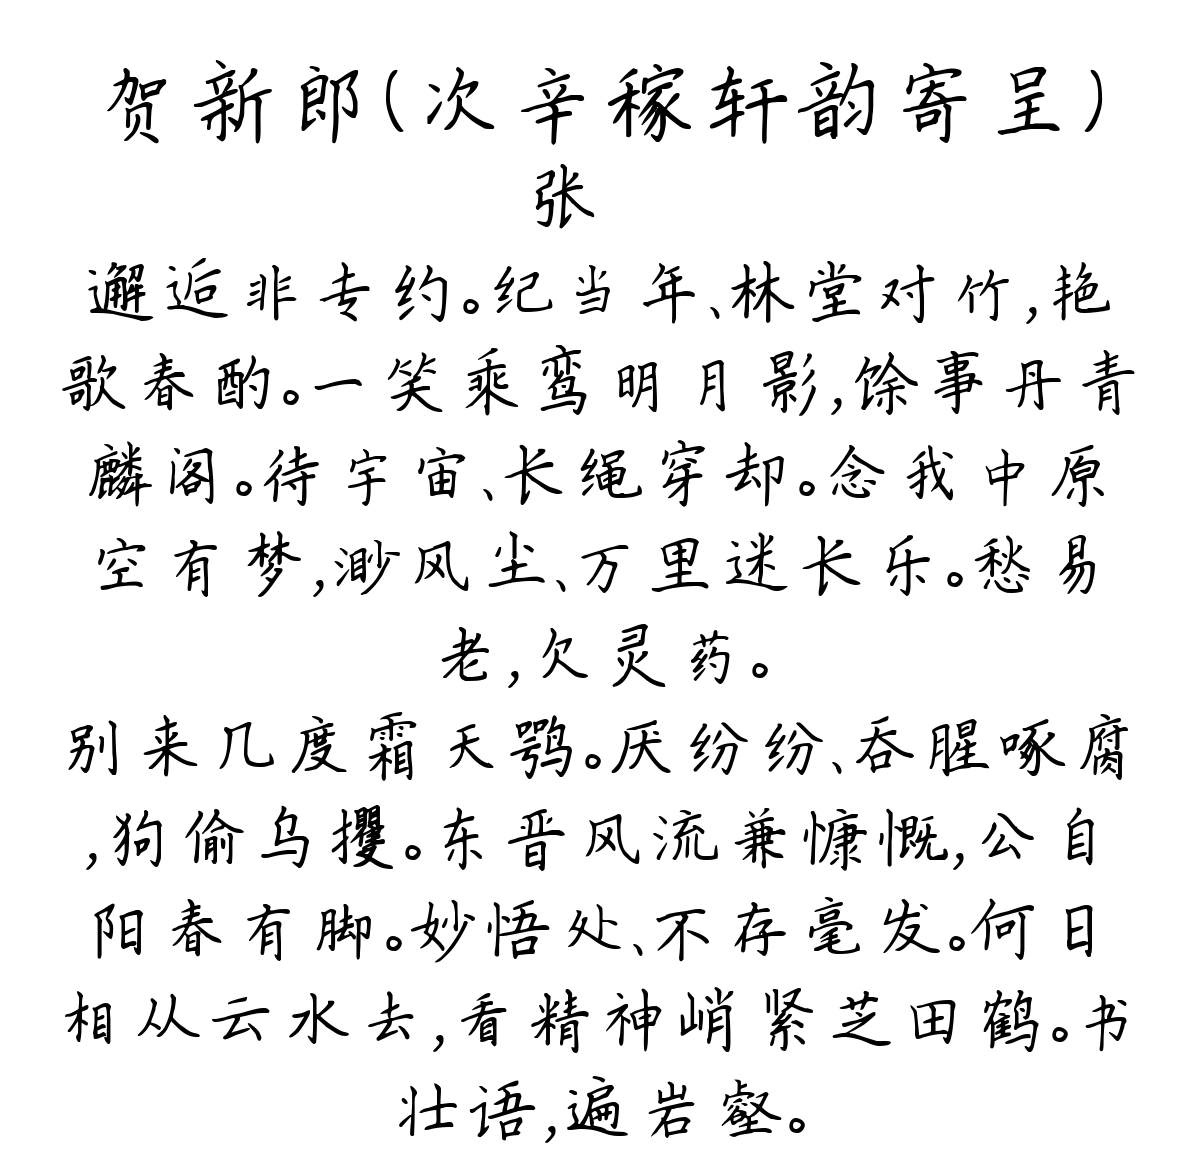 贺新郎(次辛稼轩韵寄呈)
张
邂逅非专约。纪当年、林堂对竹,艳
歌春酌。一笑乘鸾明月影,馀事丹青
麟阁。待宇宙、长绳穿却。念我中原
空有梦,渺风尘、万里迷长乐。愁易
老,欠灵药。
别来几度霜天鹗。厌纷纷、吞腥啄腐
,狗偷乌攫。东晋风流兼慷慨,公自
阳春有脚。妙悟处、不存毫发。何日
相从云水去,看精神峭紧芝田鹤。书
壮语,遍岩壑。